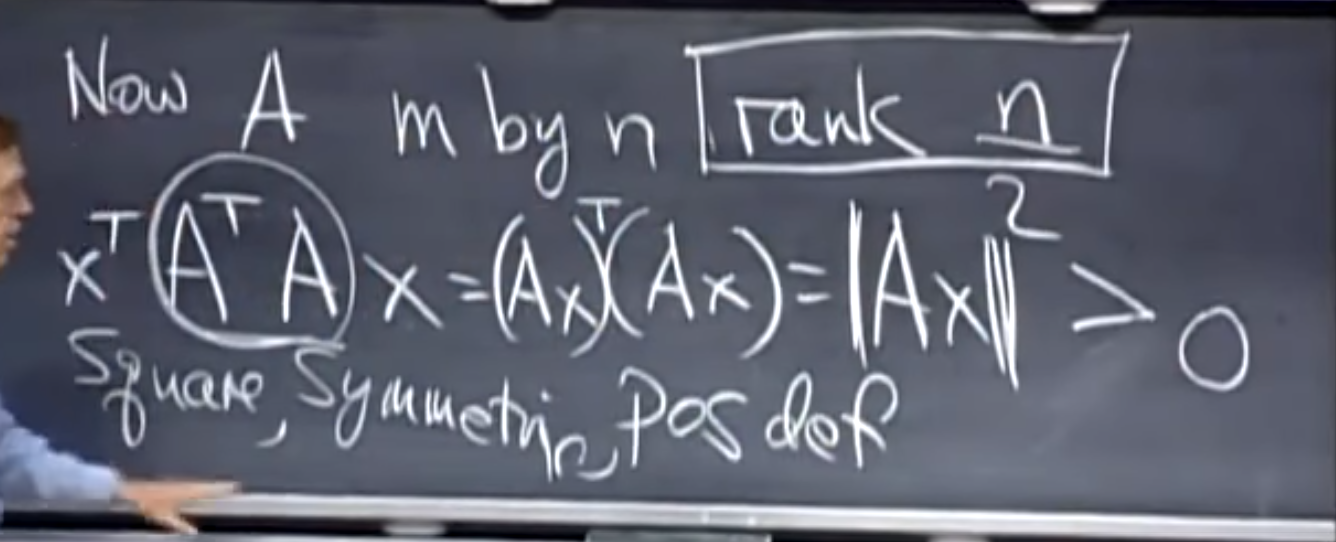 Now A m by n rank n
xᵀ AᵀA x = (Ax)ᵀ(Ax) = ||Ax||² > 0
Square, Symmetric, Pos def